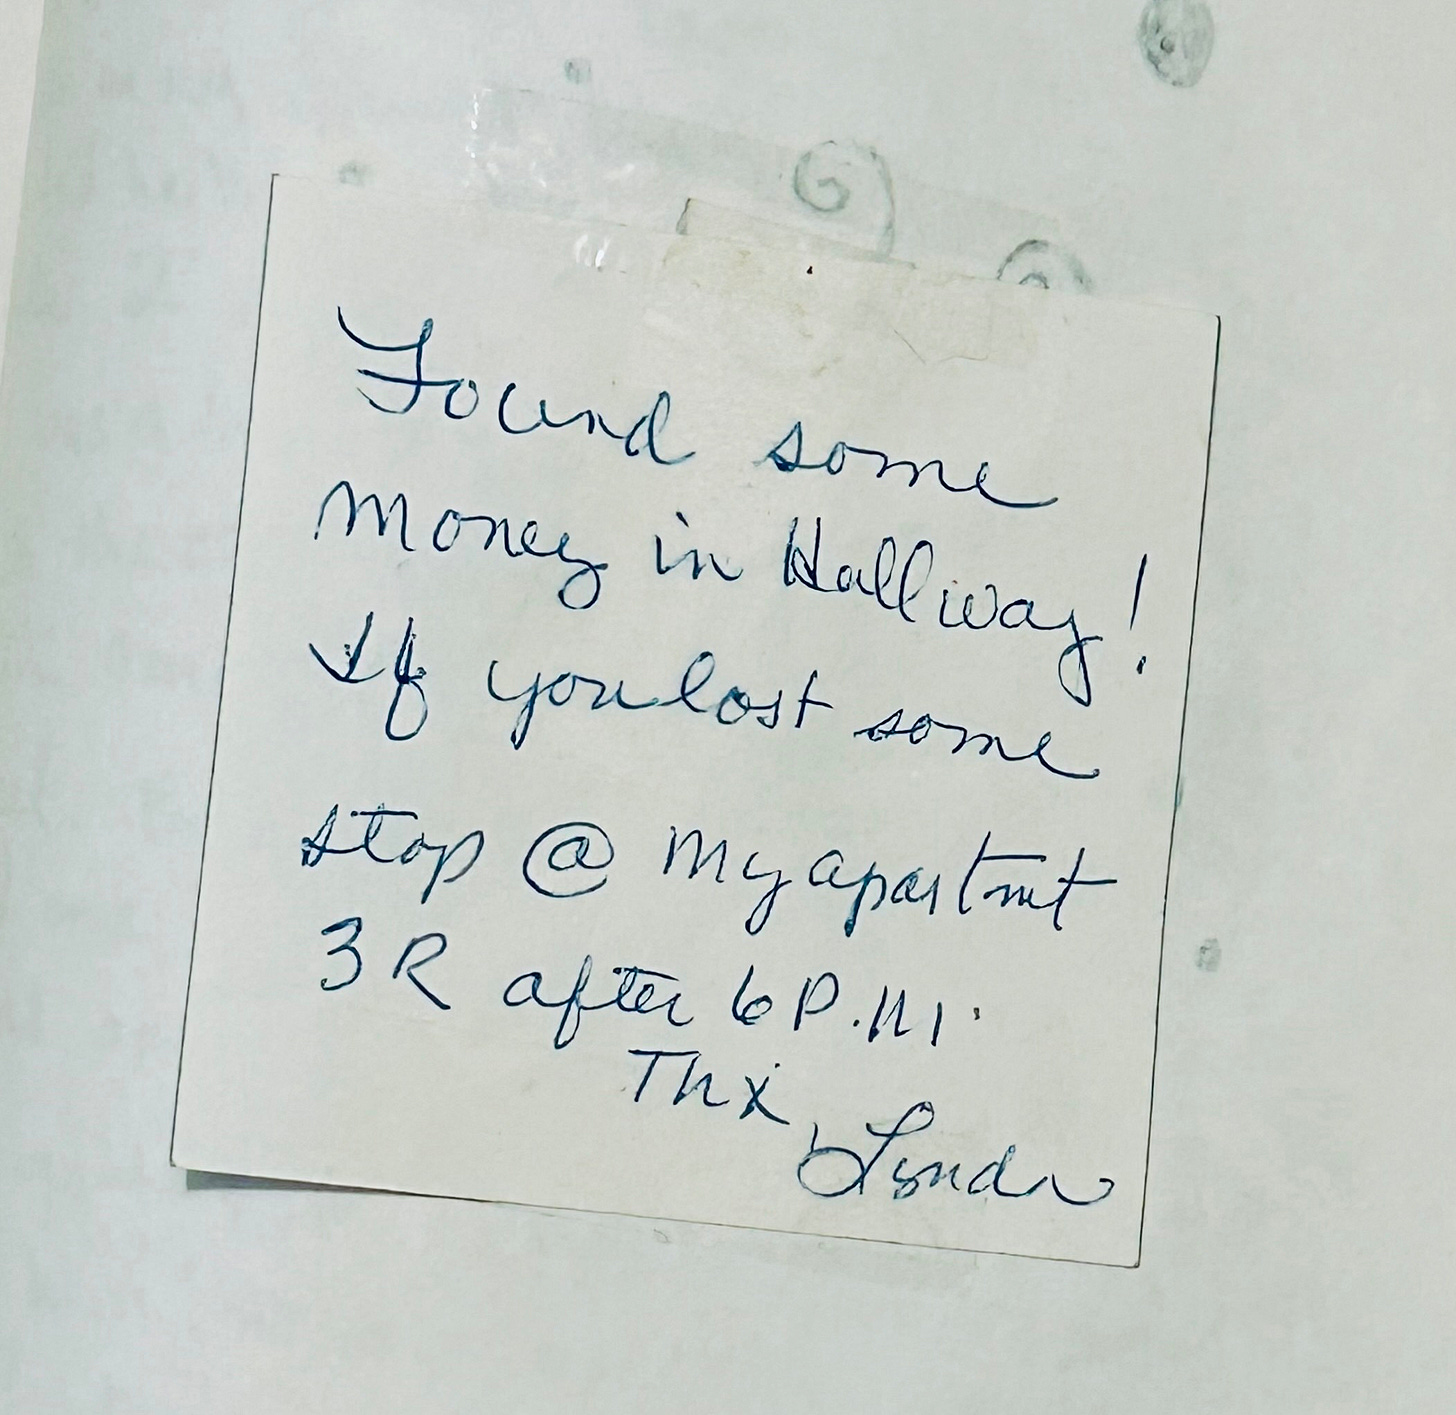 Found some
money in Hallway!
If you lost some
stop @ my apartmt
3R after 6 P.M.
Thx,
Lynda